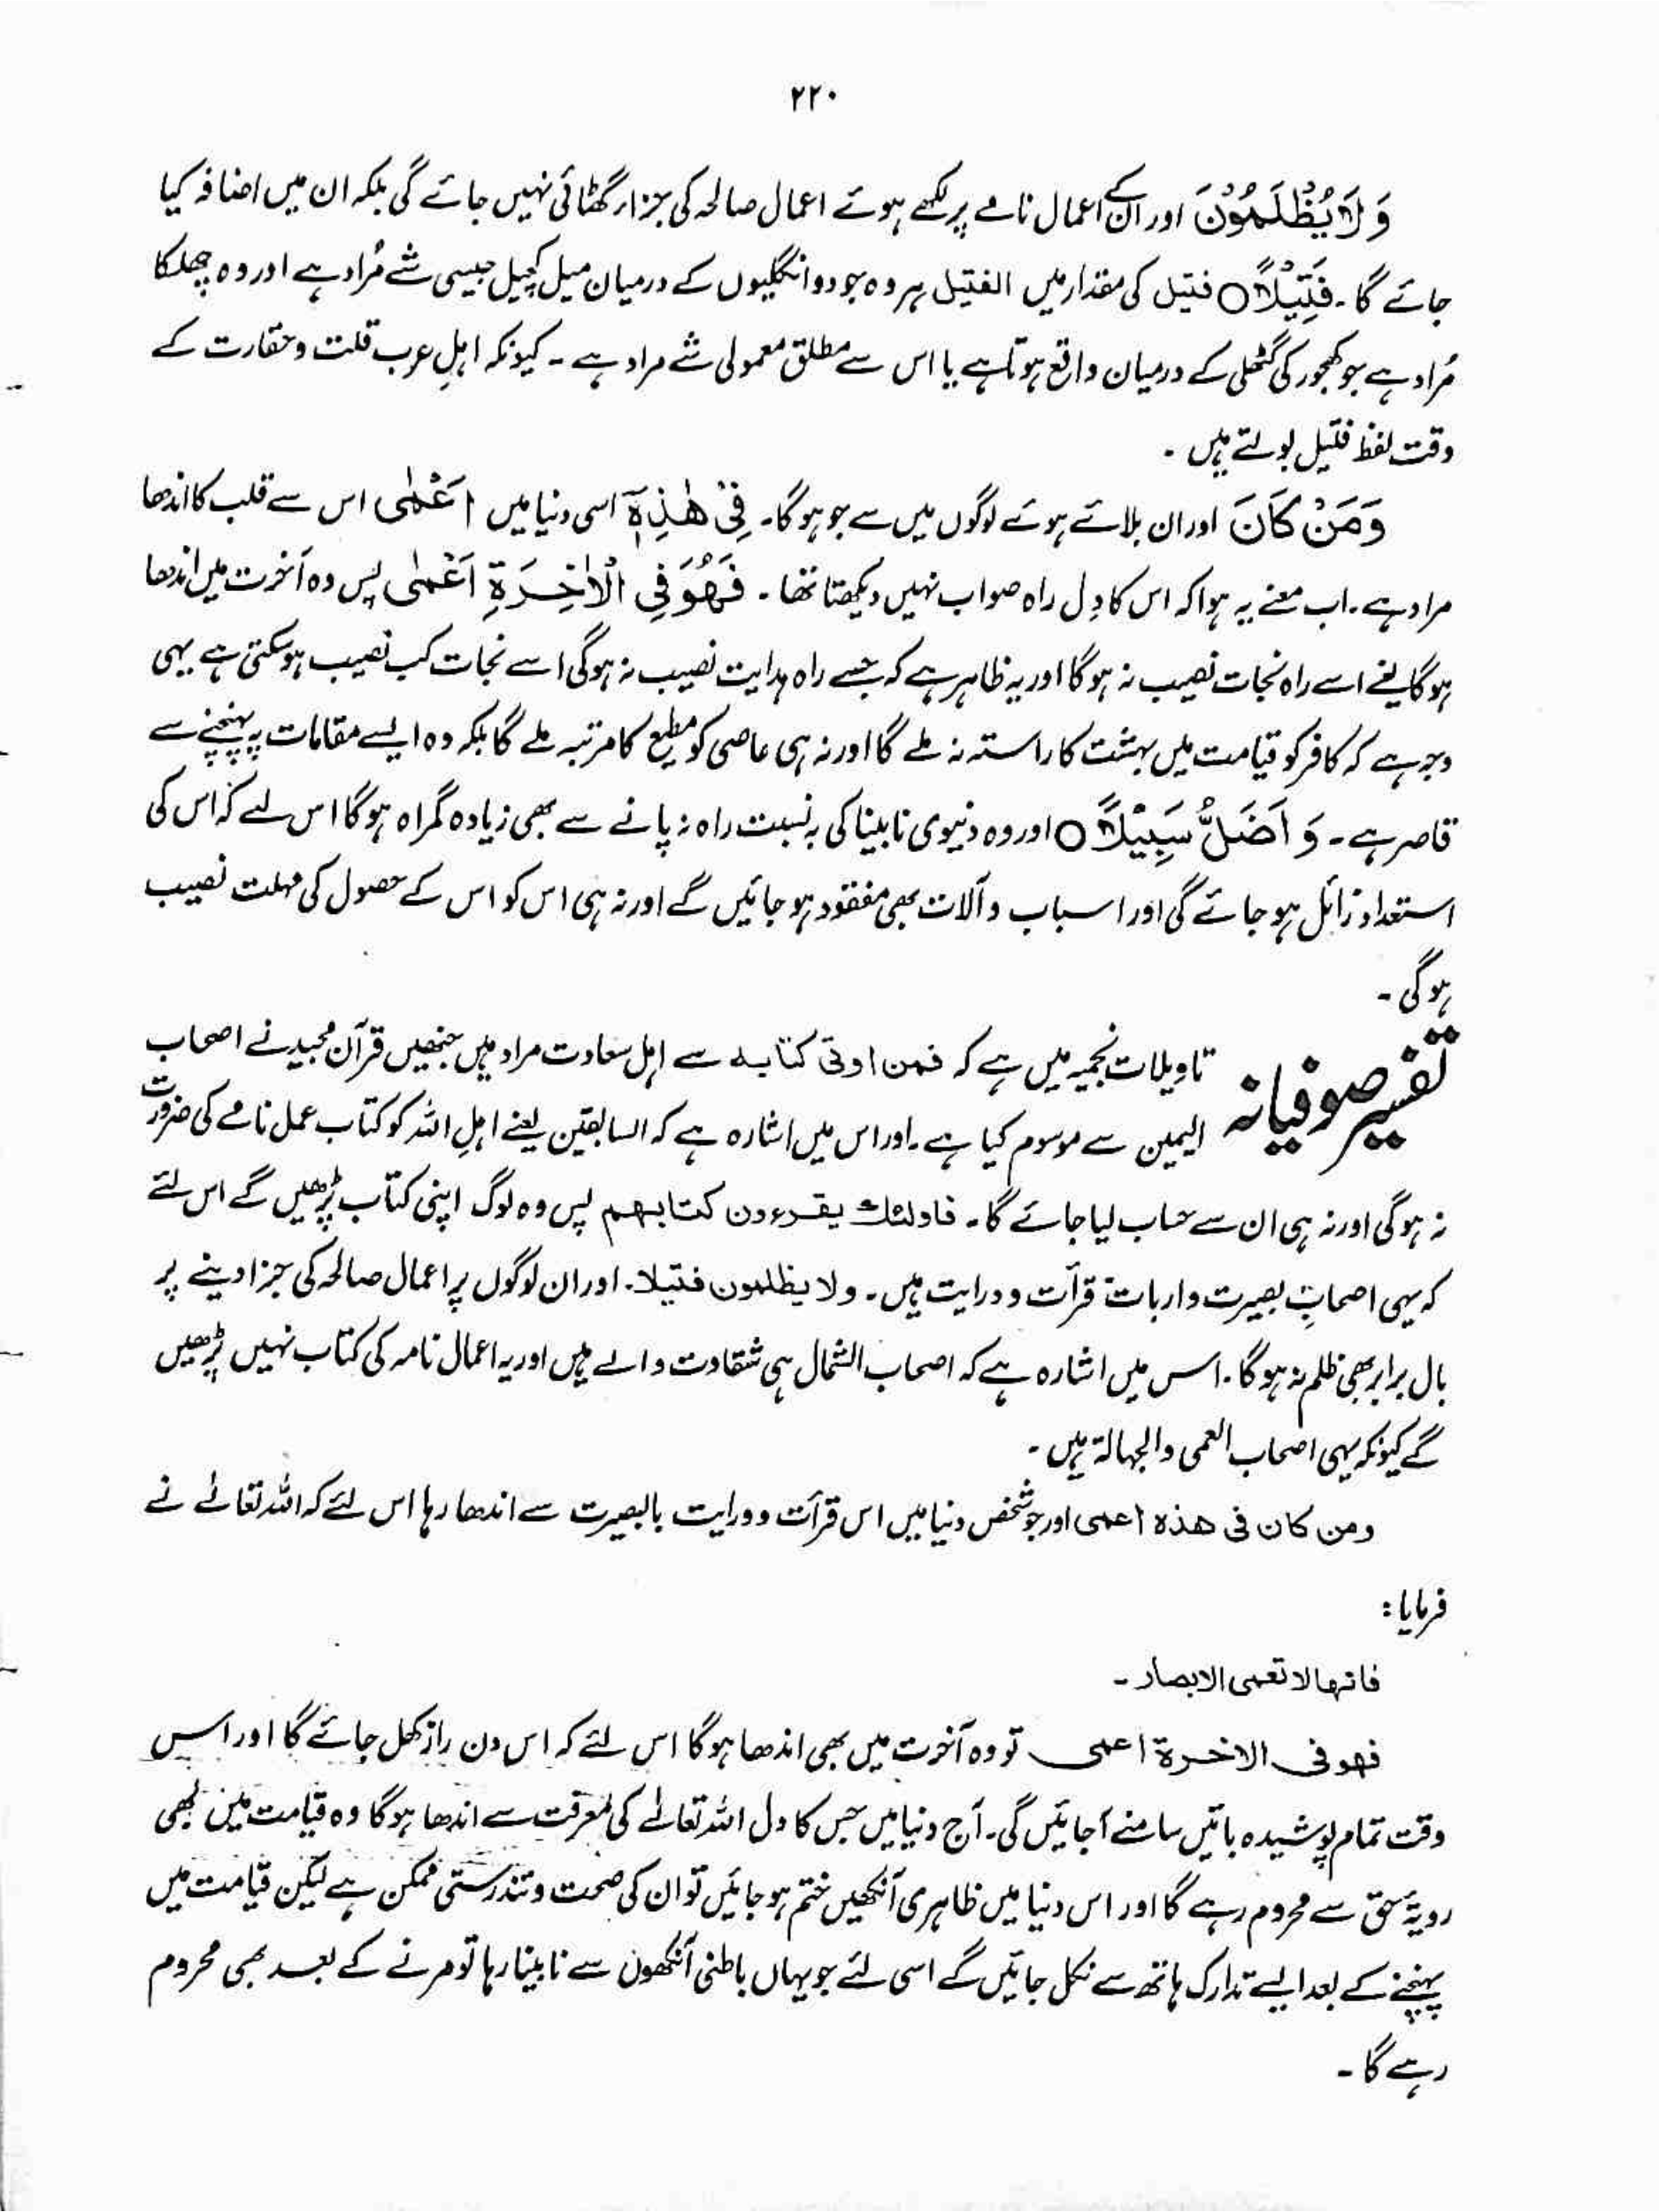 ۲۲۰
وَلَا يُظْلَمُوْنَ اور ان کے اعمال نامے پر لکھے ہوئے اعمال صالحہ کی جزاء گھٹائی نہیں جائے گی بلکہ ان میں اضافہ کیا
جائے گا۔ فَتِيْلًا ○ فتیل کی مقدار میں الفتیل ہر وہ جو دو انگلیوں کے درمیان میل کچیل جیسی شے مُراد ہے اور وہ چھلکا
مُراد ہے جو کھجور کی گٹھلی کے درمیان واقع ہوتا ہے یا اس سے مطلق معمولی شے مراد ہے ۔ کیونکہ اہلِ عرب قلت و حقارت کے
وقت لفظ فتیل بولتے ہیں ۔
وَمَنْ كَانَ اور ان بلائے ہوئے لوگوں میں سے جو ہو گا۔ فِیْ هٰذِهٖٓ اسی دنیا میں اَعْمٰى اس سے قلب کا اندھا
مراد ہے ۔ اب معنے یہ ہوا کہ اس کا دِل راہ صواب نہیں دیکھتا تھا ۔ فَهُوَ فِي الْاٰخِرَةِ اَعْمٰى پس وہ آخرت میں اندھا
ہو گا یعنے اسے راہ نجات نصیب نہ ہو گا اور یہ ظاہر ہے کہ جسے راہ ہدایت نصیب نہ ہوگی اسے نجات کب نصیب ہو سکتی ہے یہی
وجہ ہے کہ کافر کو قیامت میں بہشت کا راستہ نہ ملے گا اور نہ ہی عاصی کو مطیع کا مرتبہ ملے گا بلکہ وہ ایسے مقامات پہ پہنچنے سے
قاصر ہے ۔ وَ اَضَلُّ سَبِيْلًا ○ اور وہ دنیوی نابینا کی بہ نسبت راہ نہ پانے سے بھی زیادہ گمراہ ہو گا اس لئے کہ اس کی
استعداد زائل ہو جائے گی اور اسباب و آلات بھی مفقود ہو جائیں گے اور نہ ہی اس کو اس کے حصول کی مہلت نصیب
ہو گی ۔
تفسیر صوفیانہ تاویلات نجمیہ میں ہے کہ فمن اوتی کتابہ سے اہل سعادت مراد ہیں جنھیں قرآن مجید نے اصحاب
الیمین سے موسوم کیا ہے ۔ اور اس میں اشارہ ہے کہ السابقین یعنے اہلِ اللہ کو کتاب عمل نامے کی ضرورت
نہ ہوگی اور نہ ہی ان سے حساب لیا جائے گا ۔ فاولئك يقرءون كتابهم پس وہ لوگ اپنی کتاب پڑھیں گے اس لئے
کہ یہی اصحابِ بصیرت و اربات قرآت و درایت ہیں ۔ ولا يظلمون فتيلا ۔ اور ان لوگوں پر اعمال صالحہ کی جزا دینے پر
بال برابر بھی ظلم نہ ہو گا ۔ اس میں اشارہ ہے کہ اصحاب الشمال ہی شقاوت والے ہیں اور یہ اعمال نامہ کی کتاب نہیں پڑھیں
گے کیونکہ یہی اصحاب العمی والجهالة ہیں ۔
ومن كان فى هذه اعمى اور جو شخص دنیا میں اس قرآت و ورایت بالبصیرت سے اندھا رہا اس لئے کہ اللہ تعالےٰ نے
فرمایا :
فانها لا تعمى الابصار ۔
فهو فى الاخرة اعمى تو وہ آخرت میں بھی اندھا ہو گا اس لئے کہ اس دن راز کھل جائے گا اور اس
وقت تمام پوشیدہ باتیں سامنے آجائیں گی ۔ آج دنیا میں جس کا دل اللہ تعالےٰ کی معرفت سے اندھا ہو گا وہ قیامت میں بھی
رویۃ حق سے محروم رہے گا اور اس دنیا میں ظاہری آنکھیں ختم ہو جائیں تو ان کی صحت و تندرستی ممکن ہے لیکن قیامت میں
پہنچنے کے بعد ایسے تدارک ہاتھ سے نکل جائیں گے اسی لئے جو یہاں باطنی آنکھوں سے نابینا رہا تو مرنے کے بعد بھی محروم
رہے گا ۔